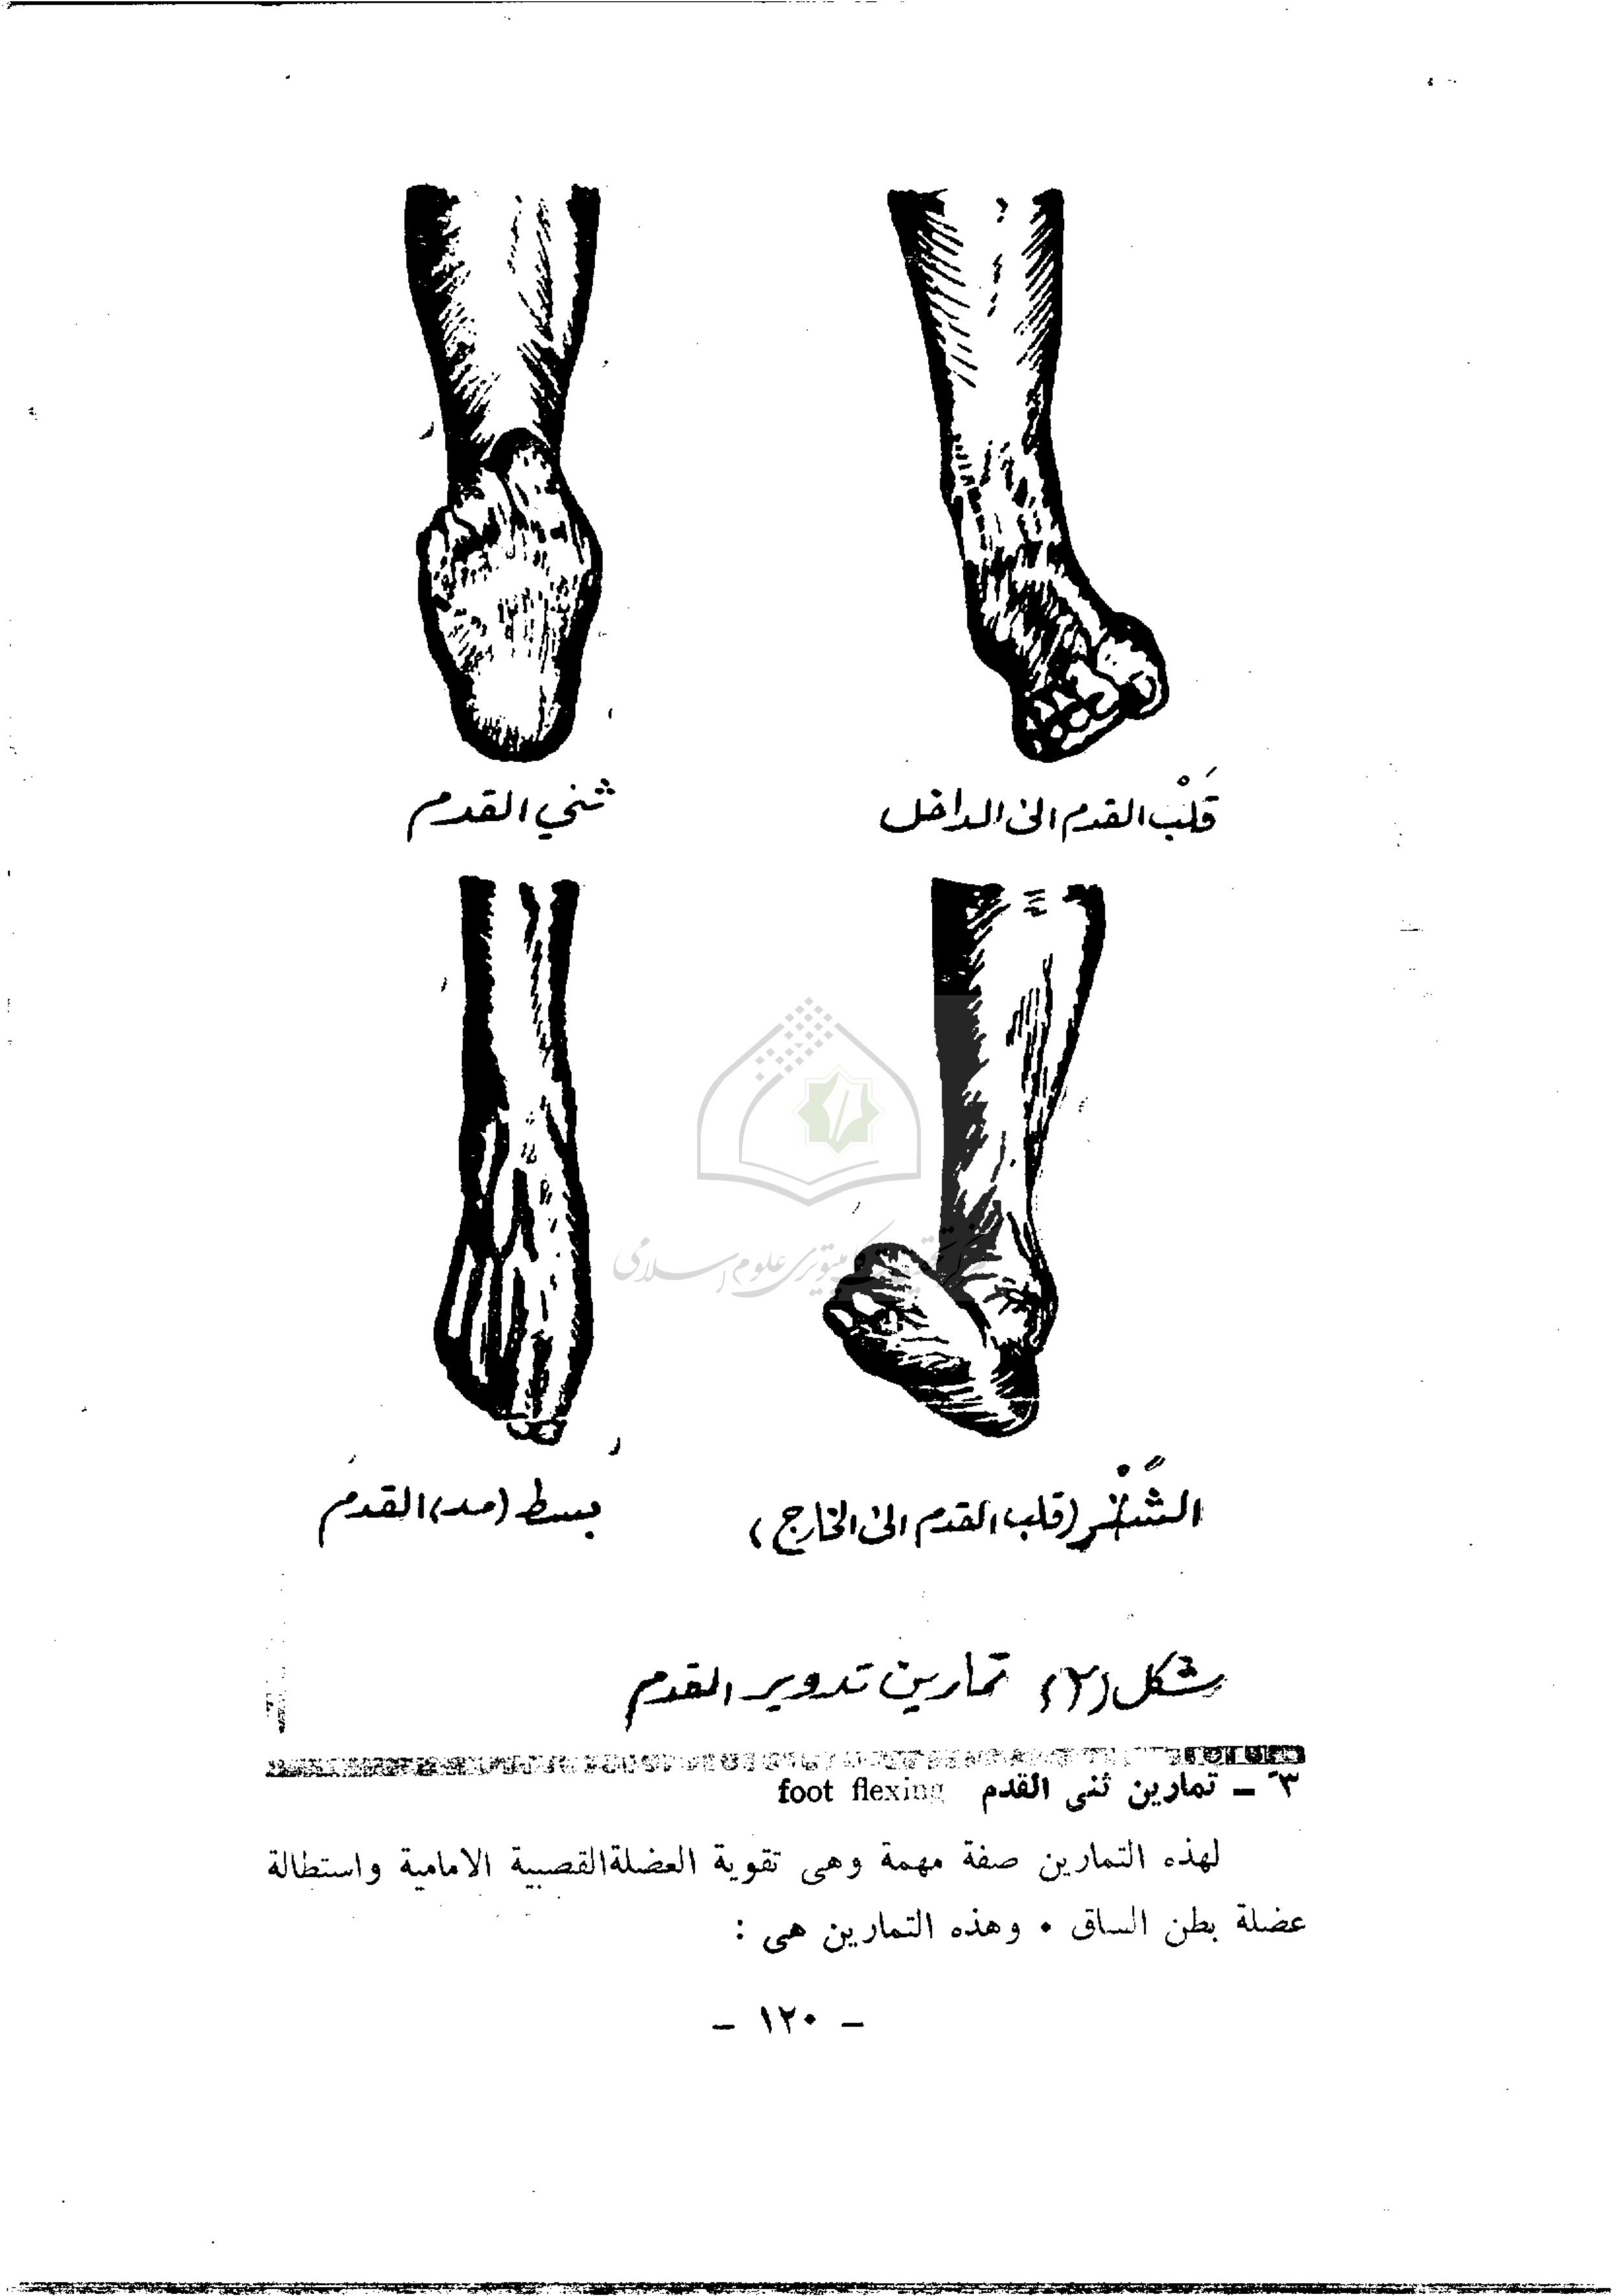 قَلْب القدم الى الداخل
ثني القدم
الشَّتْر (قلب القدم الى الخارج)
بسط (مد) القدم
شكل (٢) تمارين تدوير القدم
٣ً ـ تمارين ثنى القدم foot flexing
لهذه التمارين صفة مهمة وهى تقوية العضلة القصبية الامامية واستطالة
عضلة بطن الساق ٠ وهذه التمارين هى :
ـ ١٢٠ ـ
مركز تحقيقات كامپيوترى علوم اسلامى